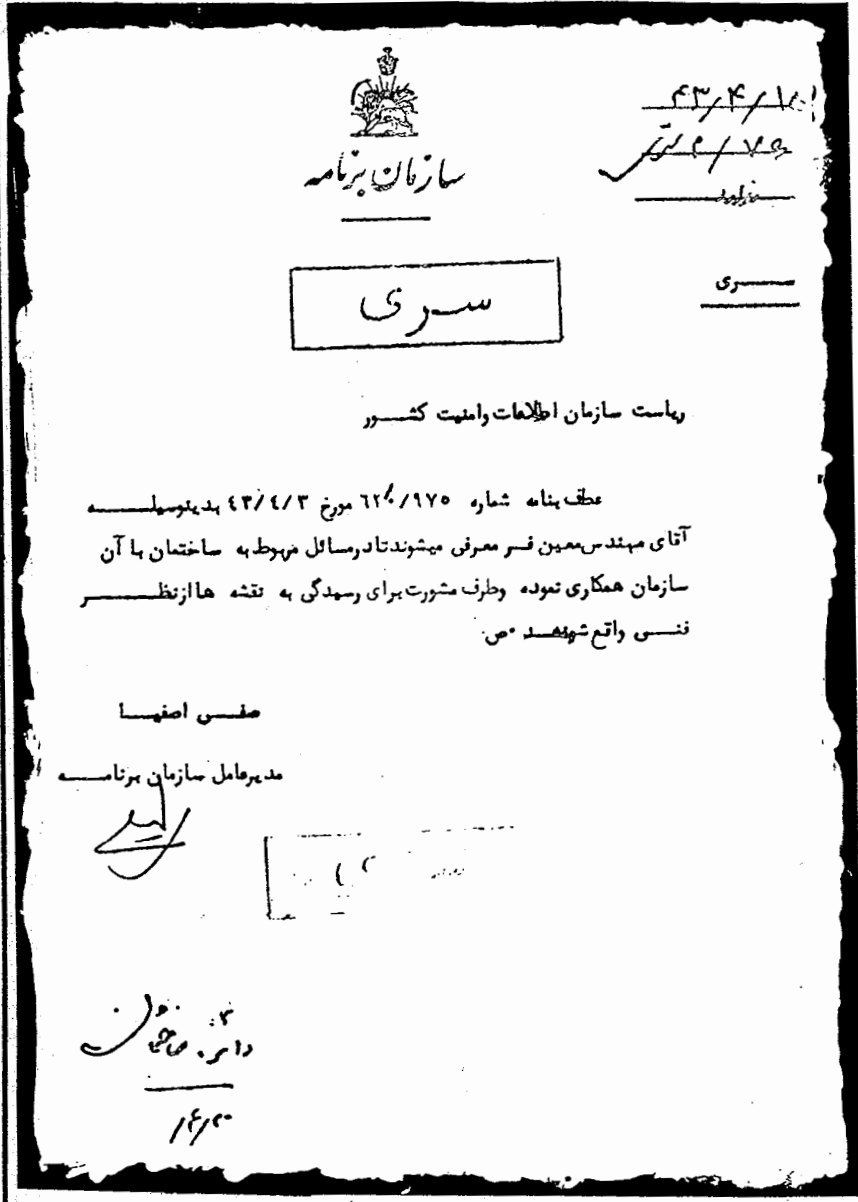 ۴۳/۴/۱۸
سازمان برنامه
ندارد
سری
سری
ریاست سازمان اطلاعات وامنیت کشور
عطف بنامه شماره ۹۷۵/ مورخ ۴۳/۴/۳ بدینوسیله
آقای مهندس معین فر معرفی میشوند تا درمسائل مربوط به ساختمان با آن
سازمان همکاری نموده وطرف مشورت برای رسیدگی به نقشه ها از نظر
فنی واقع شوند ۰ص
صفی اصفیا
مدیرعامل سازمان برنامه
دائره ساختمان